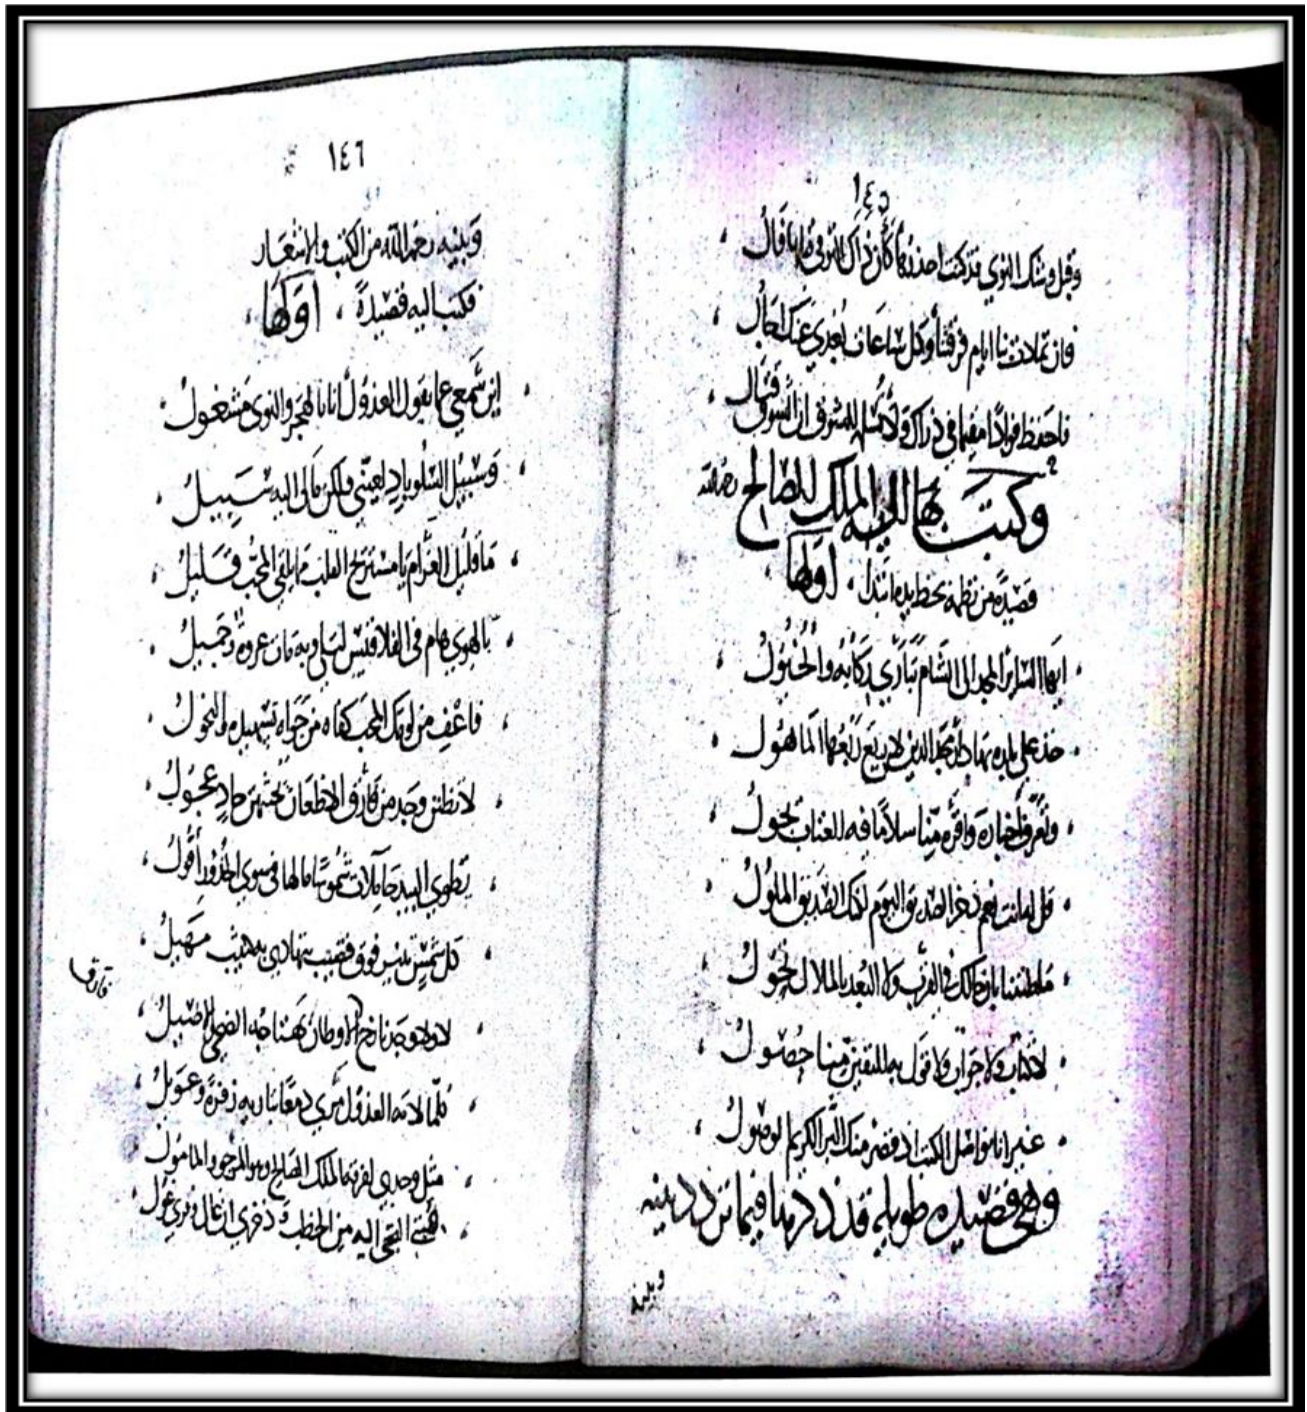 ١٤٥
وقبل وشك النوى قد كنت احذر كأن ذاك النوى في
فان تمادت بنا ايام فرقتنا وكل ساعات بعدي عنك
فاحفظ فؤادا مقيما في ذراك ولا
وكتب بها اليه الملك الصالح رحمه الله
قصيدة من نظمه بخط يده ابتدا، اولها
ايها السائر المجد الى الشام تباري ركابه والخيول
خذ على بلدة بها دار مجد الدين لا ريع ربعها الماهول
وتعرف اخباره واقره منا سلاما فيه العتاب يجول
قل له انت نعم ذخر الصديق اليوم لكنك الصديق الملول
ما ظننا بان حالك في القرب ولا البعد بالملال يحول
لا كتاب ولا جواب ولا قول به لليقين منا حصول
غير انا نواصل الكتب اذ قصر منك البر الكريم الوصول
وهي قصيدة طويلة قد
وبينه
١٤٦
وبينه رحمه الله من الكتب والاشعار
فكتب اليه قصيدة، اولها،
اين سمعي عما يقول العذول انا بالهجر والنوى مشغول
وسبيل السلو باد لعيني ولكن ما لي اليه سبيل
ما قليل الغرام يا مستريح القلب مما يلقى المحب قليل
بالهوى هام في الفلا قيس ليلى وبه مات عروة وجميل
فاعف من لومك المحب كفاه من جواه تسهيده والنحول
لا تظنن وجد من فارق الاظعان يحثهن حاد عجول
تطوي البيد حاملات شموسا ما لها في سوى الخدور أفول
كل شمس تنير فوق قضيب يتهادى به كثيب مهيل
لا ولا وجد نازح الاوطان تهتاجه الضحى والاصيل
كلما لامه العذول مرى دمعا زفرة وعويل
مثل وجدي لفرقة الملك الصالح وهو المرجو والمامول
التجي اليه من الخطب وذخري ان غال وفري غول
فارق